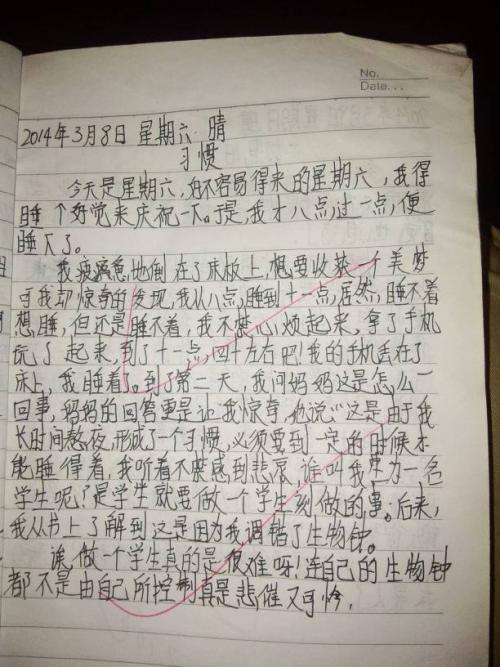 No.
Date...
2014年3月8日 星期六 晴
习惯
今天是星期六,好不容易得来的星期六,我得
睡个好觉来庆祝一下。于是,我才八点,过一点,便
睡下了。
我疲惫地倒在了床板上,想要收获一个美梦
可我却惊奇的发现,我从八点,睡到十一点,居然,睡不着
想睡,但还是睡不着,我不禁心烦起来,拿了手机
玩了起来,到了十一点,四十左右吧!我的手机丢在了
床上,我睡着了。到了第二天,我问妈妈这是怎么一
回事,妈妈的回答更是让我惊奇,他说:"这是由于我
长时间熬夜,形成了一个习惯,必须要到一定的时候才
能睡得着,我听着不禁感到悲哀,谁叫我是为一名
学生呢?是学生就要做一个学生刻做的事。后来,
我从书上了解到这是因为我调错了生物钟。
诶,做一个学生真的是很难呀!连自己的生物钟
都不是由自己所控制真是悲催又可怜.